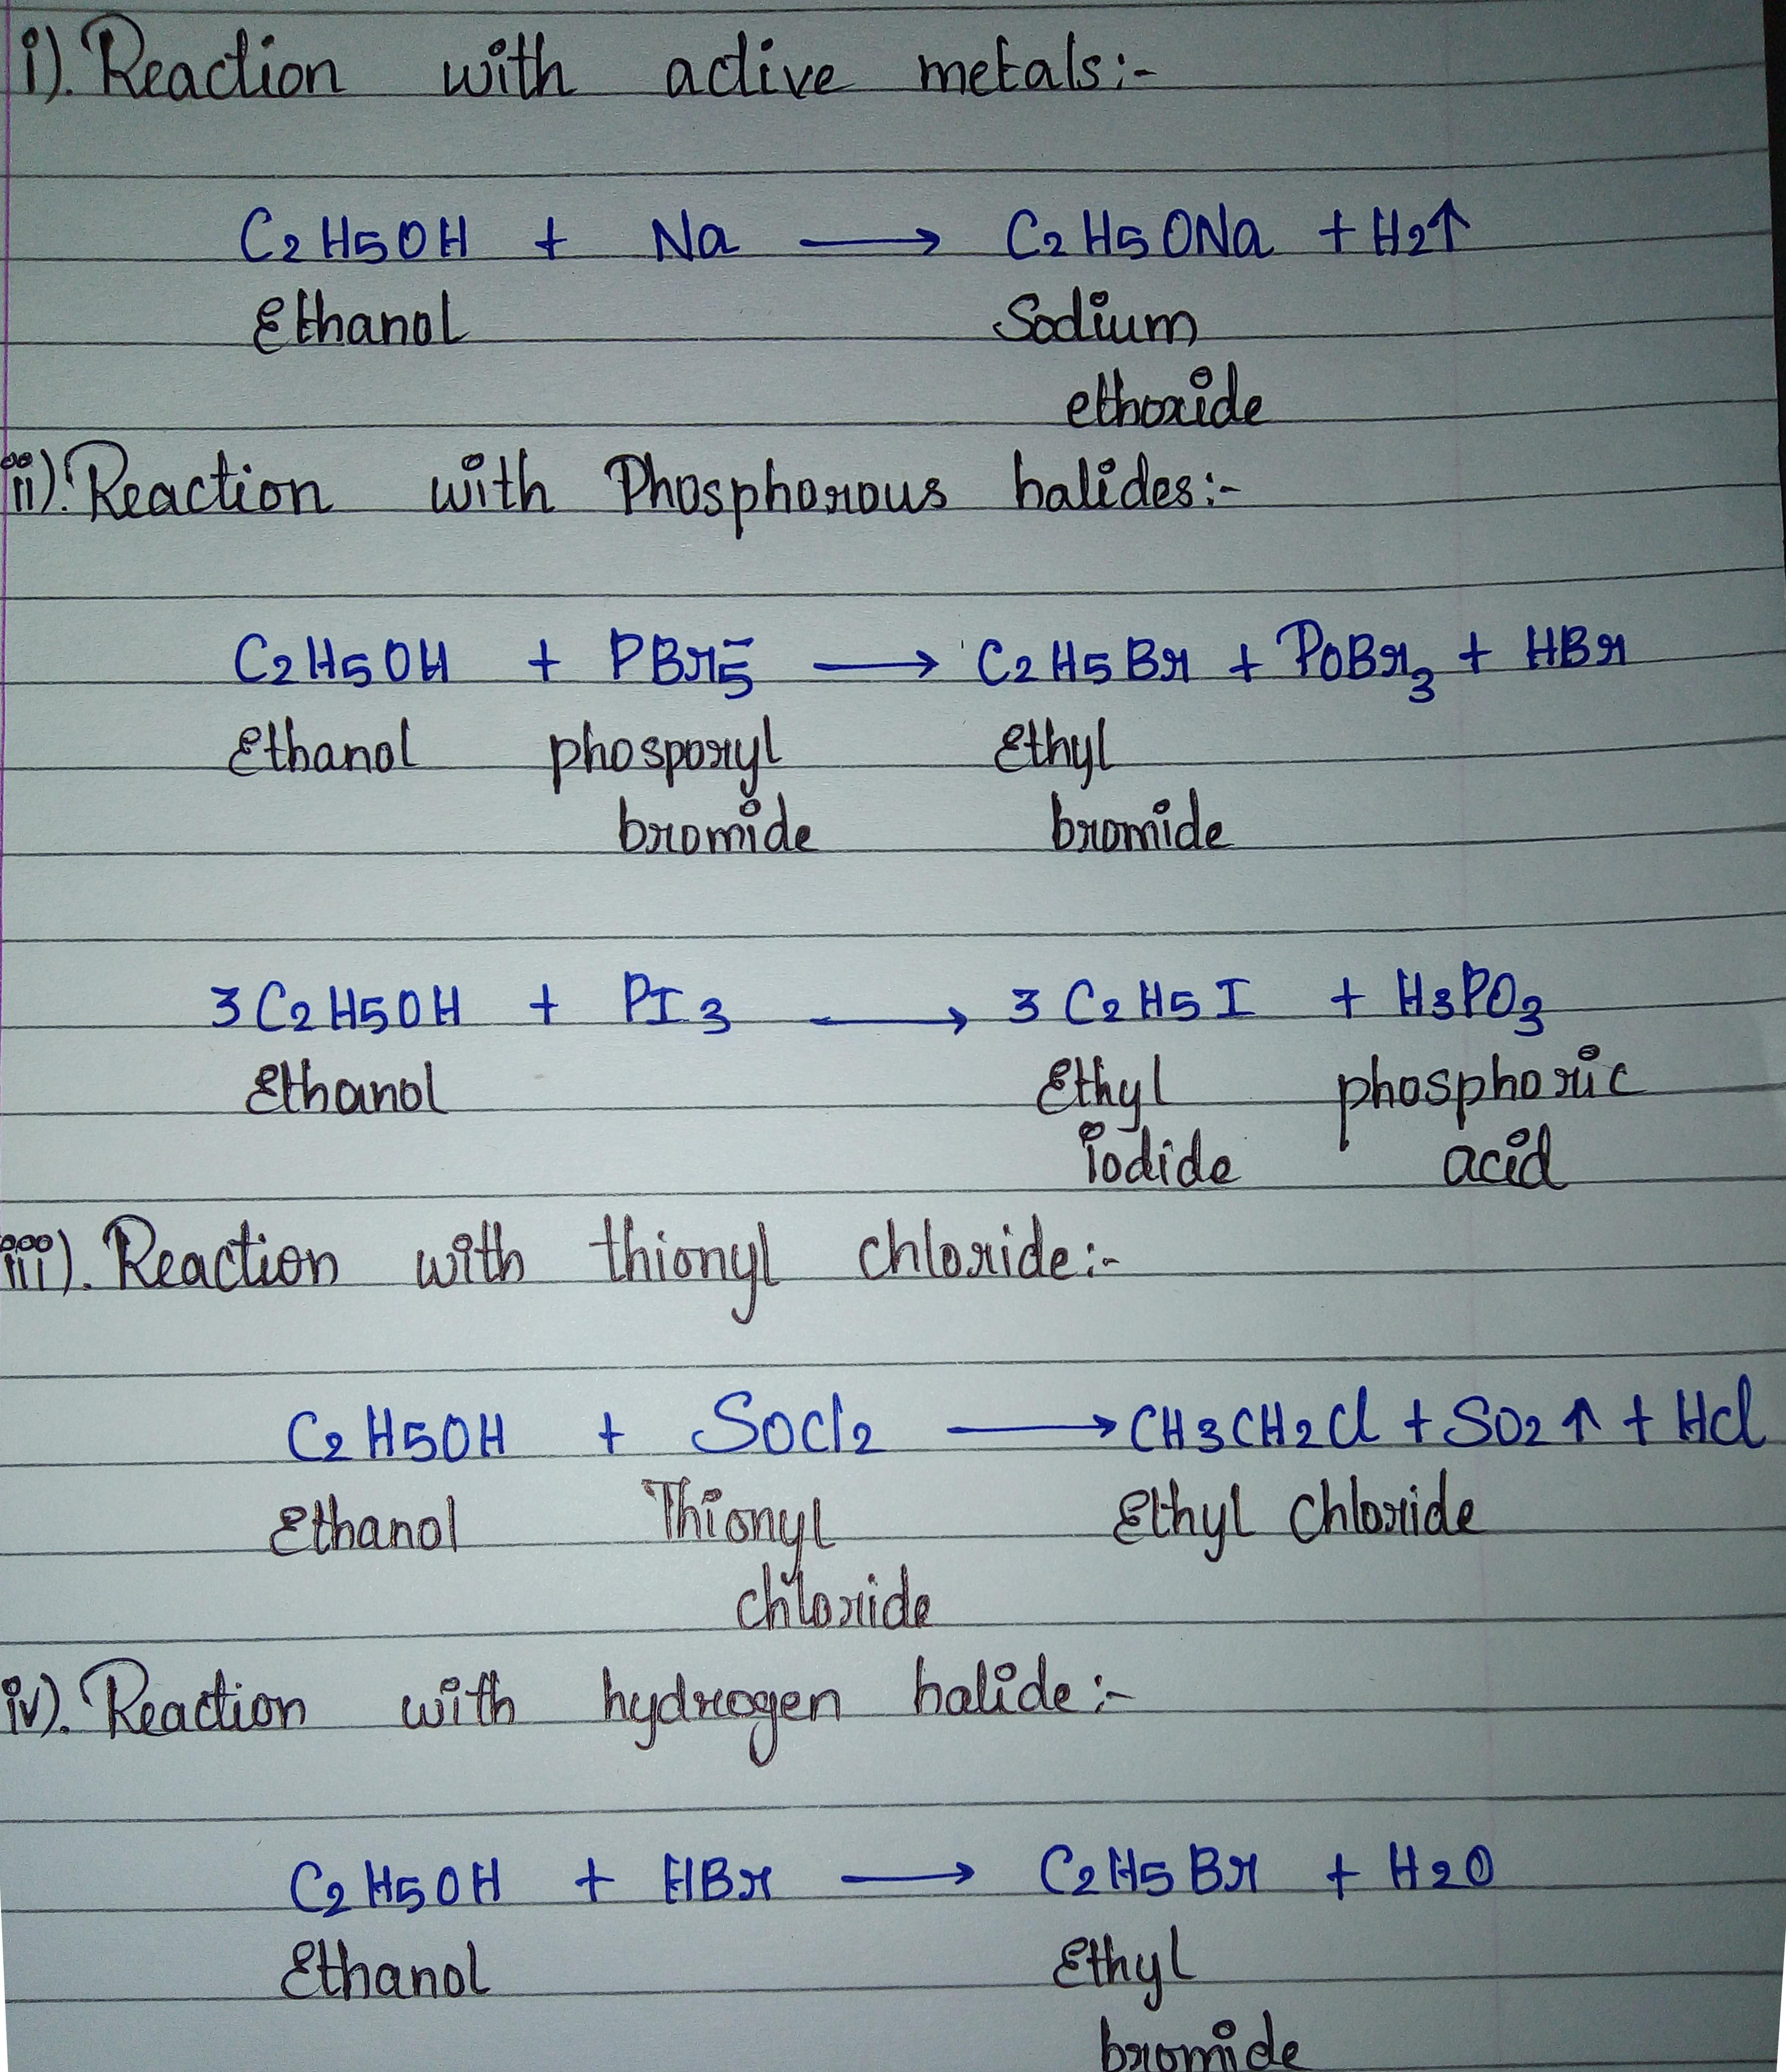 i). Reaction with active metals:-
C2H5OH + Na ⟶ C2H5ONa + H2↑
Ethanol Sodium
ethoxide
ii). Reaction with Phosphorous halides:-
C2H5OH + PBr5 ⟶ C2H5Br + POBr3 + HBr
Ethanol phosporyl Ethyl
bromide bromide
3C2H5OH + PI3 ⟶ 3C2H5I + H3PO3
Ethanol Ethyl phosphoric
iodide acid
iii). Reaction with thionyl chloride:-
C2H5OH + SOCl2 ⟶ CH3CH2Cl + SO2↑ + HCl
Ethanol Thionyl Ethyl Chloride
chloride
iv). Reaction with hydrogen halide:-
C2H5OH + HBr ⟶ C2H5Br + H2O
Ethanol Ethyl
bromide